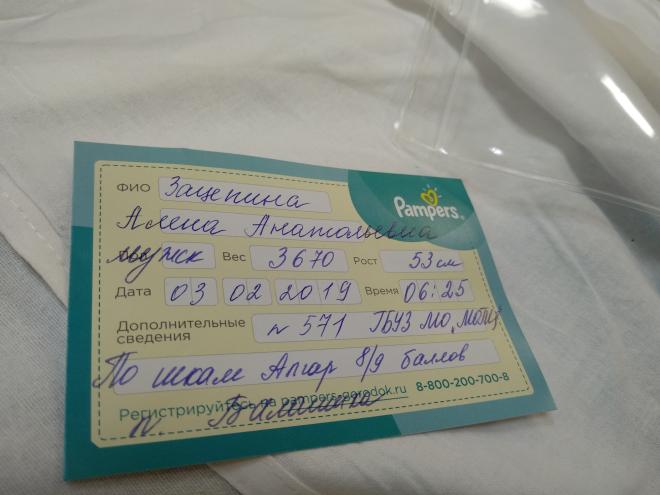 ФИО Зацепина
Pampers
Алена Анатольевна
мужск Вес 3670 Рост 53 см
Дата 03 02 2019 Время 06:25
Дополнительные сведения № 571 ГБУЗ МО "МОПЦ"
По шкам Апгар 8/9 баллов
Регистрируйтесь на pampers-gorodok.ru 8-800-200-700-8